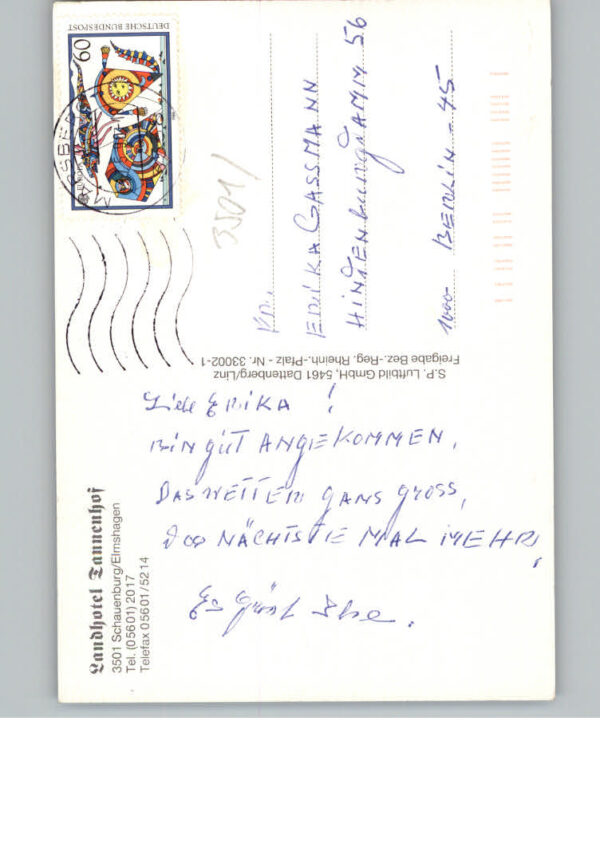 Landhotel Tannenhof
3501 Schauenburg/Elmshagen
Tel. (05601) 2017
Telefax 05601/5214
Liebe ERIKA !
BIN gut ANGEKOMMEN,
DAS WETTER GANS GROSS,
DAS NÄCHSTE MAL MEHR,
Es grüßt
S.P. Luftbild GmbH, 5461 Dattenberg/Linz
Freigabe Bez.-Reg. Rheinh.-Pfalz - Nr. 33002-1
DEUTSCHE BUNDESPOST
60
3501/
ERIKA GASSMANN
HINDENburgdAMM 56
1000 BERLIN-45